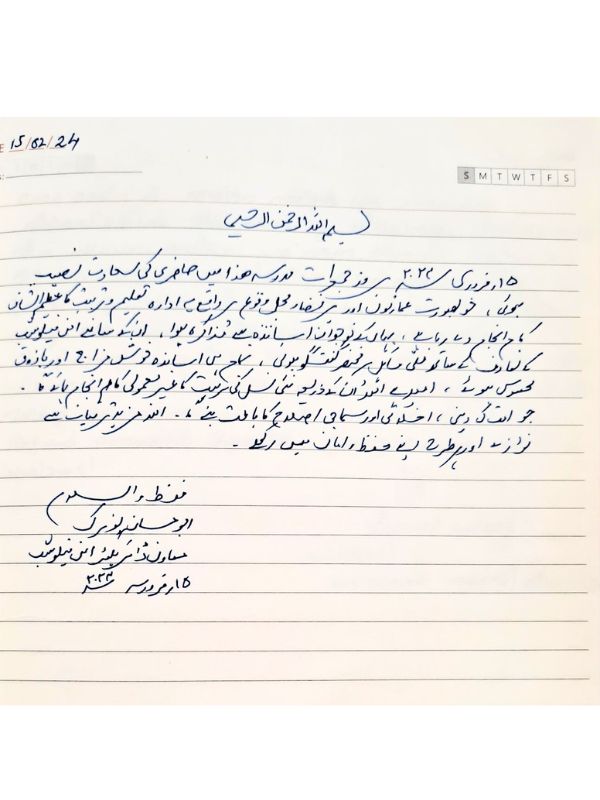 E 15/02/24
S M T W T F S
بسم اللہ الرحمن الرحیم
۱۵ فروری ۲۰۲۴ء بروز جمعرات مدرسہ ھذا میں حاضری کی سعادت نصیب
ہوئی، خوبصورت عمارتوں اور پرفضا محل وقوع پر واقع یہ ادارہ تعلیم و تربیت کا عظیم الشان
کام انجام دے رہا ہے، یہاں کے نوجوان اساتذہ سے مذاکرہ ہوا، ان کے سامنے امن فیلوشپ
کے تعارف کے ساتھ ملی مسائل پر مختصر گفتگو ہوئی، تمام ہی اساتذہ خوش مزاج اور باذوق
محسوس ہوئے، امید ہے انشاء اللہ ان کے ذریعہ نئی نسل کی تربیت کا غیر معمولی کام انجام پائے گا۔
جو امت کی دینی، اخلاقی اور سماجی اصلاح کا باعث بنے گا۔ اللہ مزید ترقیات سے
نوازے اور ہر طرح اپنے حفظ و امان میں رکھے۔
فقط والسلام
ابو حسان
معاون ڈائریکٹر امن فیلوشپ
۱۵ فروری ۲۰۲۴ء